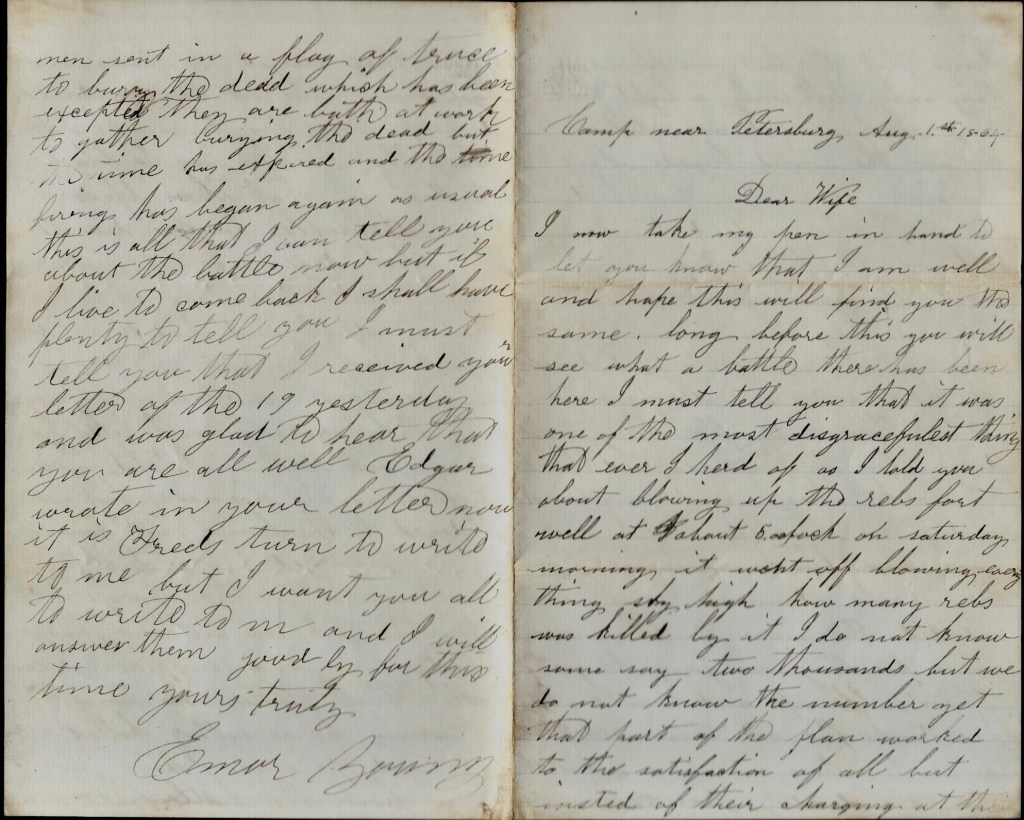 Camp near Petersburg Aug. 1st 1864
Dear Wife
I now take my pen in hand to
let you know that I am well
and hope this will find you the
same. long before this you will
see what a battle there has been
here I must tell you that it was
one of the most disgracefulest thing
that ever I herd of as I told you
about blowing up the rebs fort
well at about 5 oclock on saturday
morning it went off blowing every
thing sky high how many rebs
was killed by it I do not know
some say two thousands but we
do not know the number yet
that part of the plan worked
to the satisfaction of all but
insted of their charging at
men sent in a flag of truce
to bury the dead which has been
excepted they are both at work
to gather burying the dead but
time has expired and the
firing has began again as usual
this is all that I can tell you
about the battle now but if
I live to come back I shall have
plenty to tell you I must
tell you that I received your
letter of the 19 yesterday
and was glad to hear that
you are all well Edgar
wrote in your letter now
it is Freds turn to write
to me but I want you all
to write to m and I will
answer them good by for this
time yours truly
Emor Young